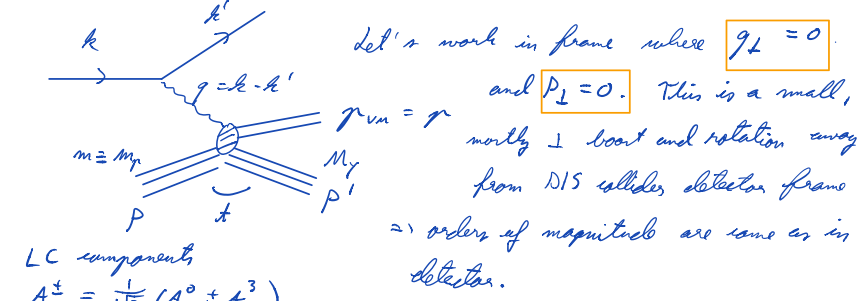 k
k'
q = k - k'
p_VM = p
m ≡ m_p
M_Y
P
t
P'
LC components
A^± = 1/√2 (A^0 ± A^3)
Let's work in frame where q_⊥ = 0.
and P_⊥ = 0. This is a small,
mostly ⊥ boost and rotation away
from DIS collider detector frame
⇒ orders of magnitude are same as in
detector.